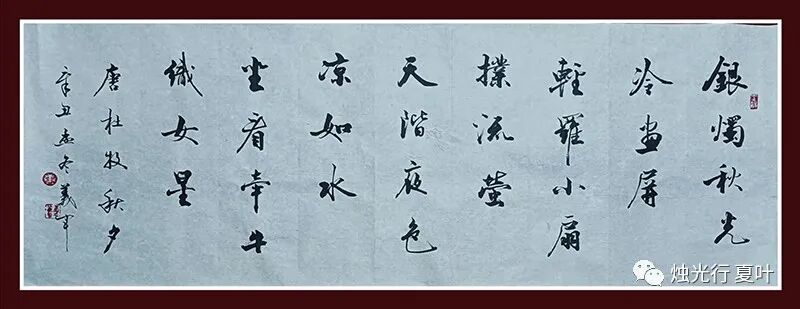 銀燭秋光
冷畫屏
輕羅小扇
撲流螢
天階夜色
凉如水
坐看牽牛
織女星
唐杜牧秋夕
辛丑孟冬義军
烛光行 夏叶